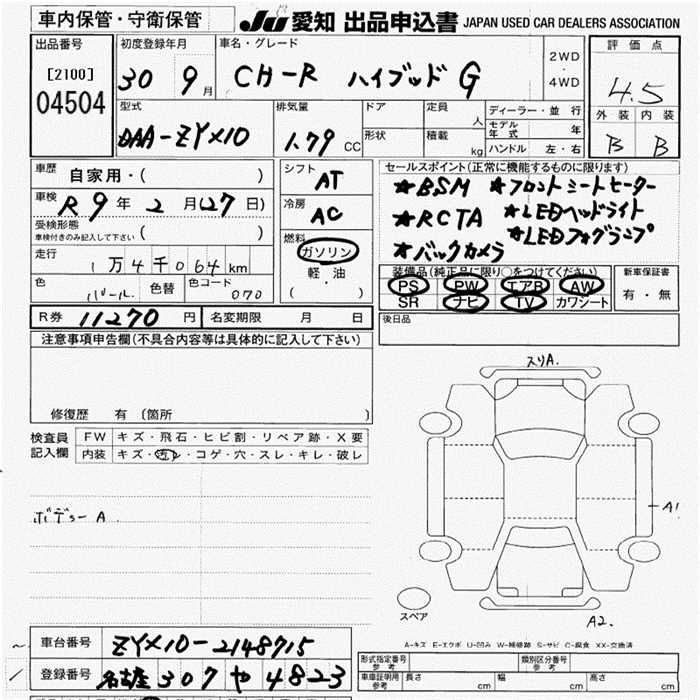 車内保管・守衛保管
JU 愛知 出品申込書 JAPAN USED CAR DEALERS ASSOCIATION
出品番号
[2100]
04504
初度登録年月
30 9月
車名・グレード
CH-R ハイブッド G
2WD
・
4WD
評価点
4.5
外装 内装
B B
型式
DAA-ZYX10
排気量
1.79 CC
ドア
形状
定員 人
積載 kg
ディーラー・並行
モデル年式 年
ハンドル 左・右
車歴 自家用・( )
車検 R9年 2月(27日)
受検形態
車検付きのみ記入して下さい ( )
走行 1万4千064km
色 パール 色替 色コード 070
シフト AT
冷房 AC
燃料
ガソリン
軽・油
( )
セールスポイント(正常に機能するものに限ります)
★BSM ★フロントシートヒーター
★RCTA ★LEDヘッドライト
★バックカメラ ★LEDフォグランプ
装備品(純正品に限り○をつけてください)
PS PW エアB AW
SR ナビ TV カワシート
新車保証書
有・無
後日品
R券 11270円 名変期限 月 日
注意事項申告欄(不具合内容等は具体的に記入して下さい)
修復歴 有(箇所 )
検査員記入欄
FW キズ・飛石・ヒビ割・リペア跡・X要
内装 キズ・汚レ・コゲ・穴・スレ・キレ・破レ
ボデーA
スリA.
A1
A2.
スペア
A-キズ E-エクボ U-凹み W-補修跡 S-サビ C-腐食 XX-交換済
車台番号 ZYX10-2148715
登録番号 名古屋 307 や 4823
形式指定番号 参考
類別区分番号 参考
車庫証明用 参考 長さ cm 幅 cm 高さ cm